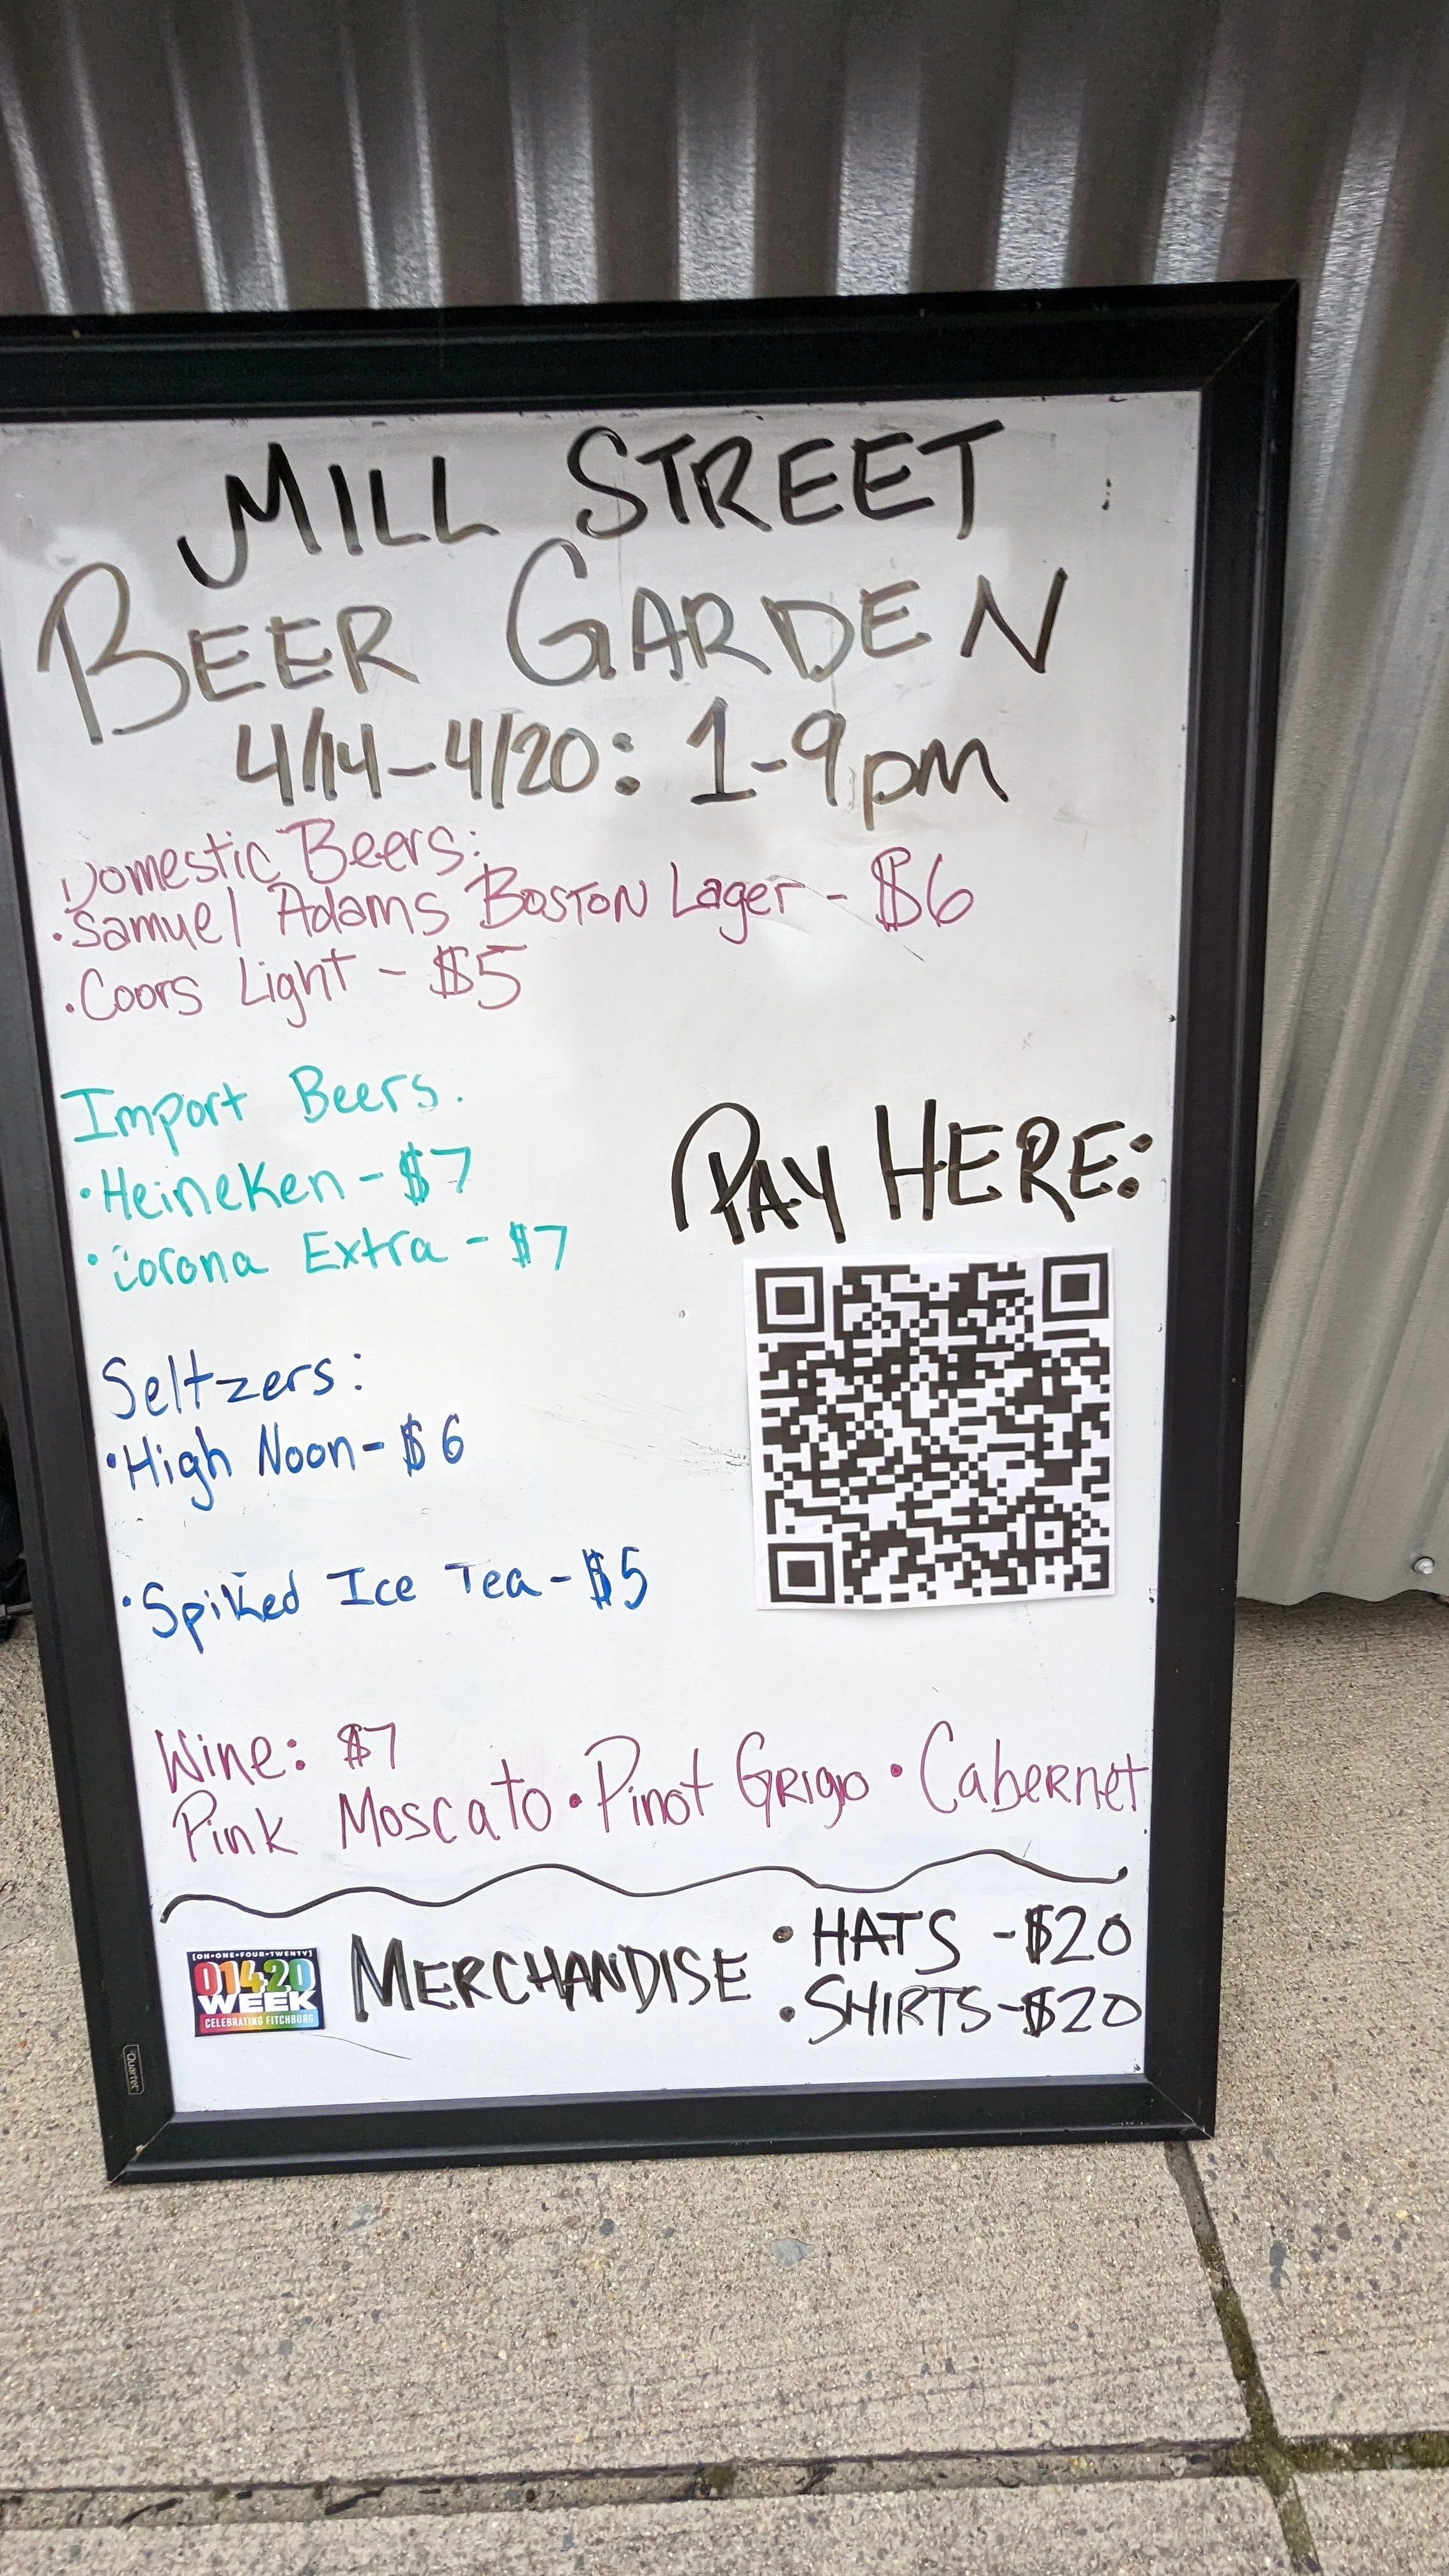 MILL STREET
BEER GARDEN
4/14-4/20: 1-9pm
Domestic Beers:
·Samuel Adams Boston Lager - $6
·Coors Light - $5
Import Beers.
·Heineken - $7
·Corona Extra - $7
PAY HERE:
Seltzers:
·High Noon - $6
·Spiked Ice Tea - $5
Wine: $7
Pink Moscato • Pinot Grigio • Cabernet
[OH•ONE•FOUR•TWENTY]
01420
WEEK
CELEBRATING FITCHBURG
MERCHANDISE
• HATS - $20
• SHIRTS - $20
Quartet